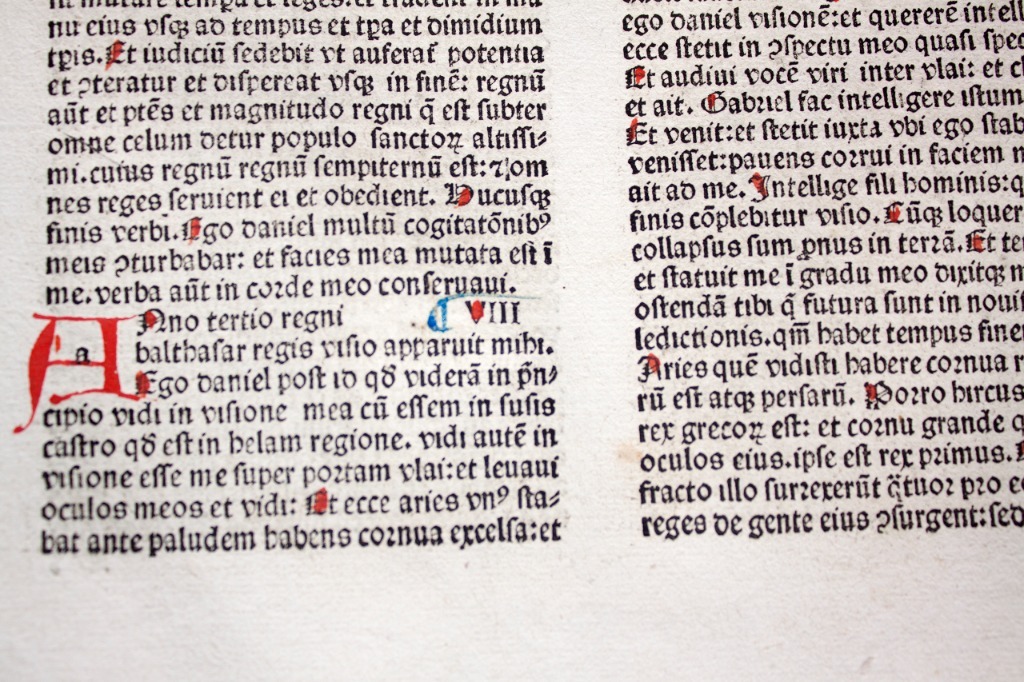 mutare tempora et leges: et tradent̄ in ma
nu eius vsqꝫ ad tempus et tꝑa et dimidium
tꝑis. Et iudiciū sedebit vt auferat̄ potentia
et ꝯteratur et dispereat vsqꝫ in finē: regnū
aūt et ptēs et magnitudo regni q̄ est subter
omne celum detur populo sanctoꝝ altissi⸗
mi. cuius regnū regnū sempiternū est: ⁊ om
nes reges seruient ei et obedient. Hucusqꝫ
finis verbi. Ego daniel multū cogitatōnibꝰ
meis ꝯturbabar: et facies mea mutata est ī
me. verba aūt in corde meo conseruaui.
Anno tertio regni VIII
a
balthasar regis visio apparuit mihi.
Ego daniel post id qđ viderā in p̄n⸗
cipio vidi in visione mea cū essem in susis
castro qđ est in helam regione. vidi autē in
visione esse me super portam vlai: et leuaui
oculos meos et vidi: Et ecce aries vnꝰ sta⸗
bat ante paludem habens cornua excelsa: et
ego daniel visionē: et quererē intell
ecce stetit in ꝯspectu meo quasi spec
Et audiui vocē viri inter vlai: et cl
et ait. Gabriel fac intelligere istum
Et venit: et stetit iuxta vbi ego stab
venisset: pauens corrui in faciem m
ait ad me. Intellige fili hominis: q
finis cōplebitur visio. Cūqꝫ loquer
collapsus sum ꝓnus in terrā. Et te
et statuit me ī gradu meo dixitqꝫ m
ostendā tibi q̄ futura sunt in nouis
ledictionis. qm̄ habet tempus finem
Aries quē vidisti habere cornua r
rū est atqꝫ persarū. Porro hircus
rex grecoꝝ est: et cornu grande q
oculos eius. ipse est rex primus.
fracto illo surrexerūt q̄tuor pro eo
reges de gente eius ꝯsurgent: sed